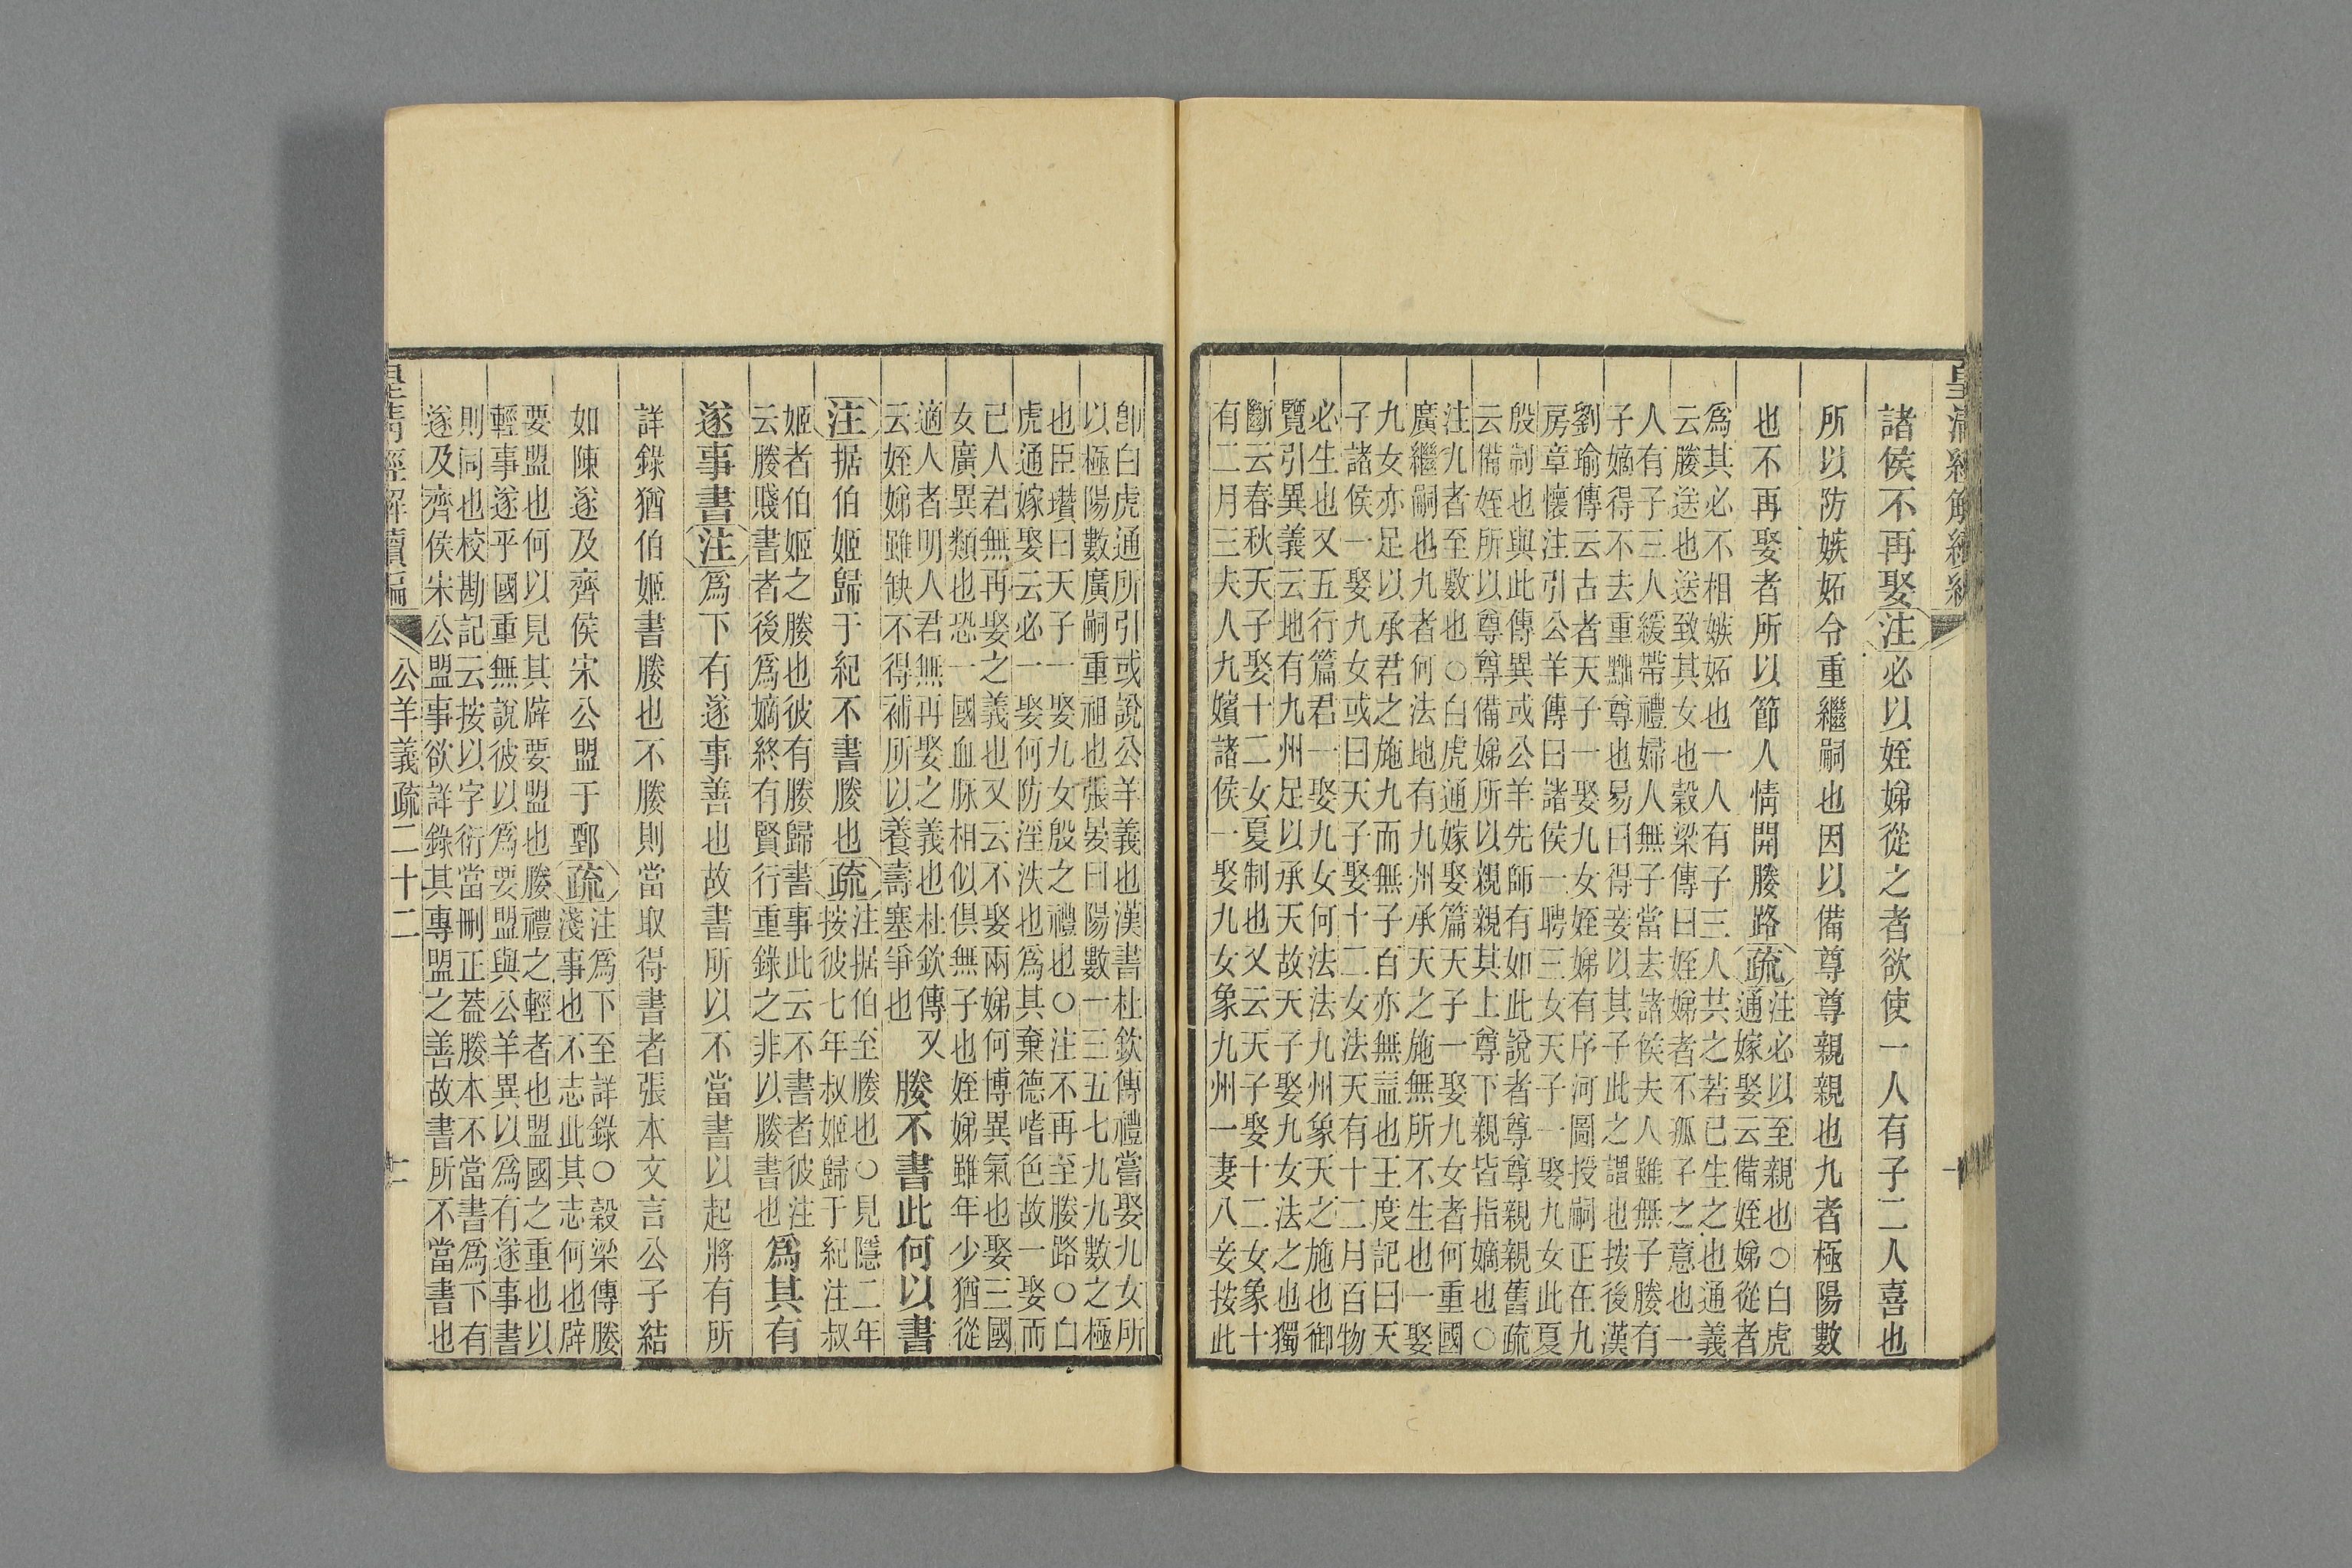 皇清經解續編
諸侯不再娶注必以姪娣從之者欲使一人有子二人喜也
所以防嫉妬令重繼嗣也因以備尊尊親親也九者極陽數
也不再娶者所以節人情開媵路疏
注必以至親也○白虎
通嫁娶云備姪娣從者
爲其必不相嫉妬也一人有子三人共之若已生之也通義
云媵送也送致其女也穀梁傳曰姪娣者不孤子之意也一
人有子三人緩帶禮婦人無子當去諸侯夫人雖無子媵有
子嫡得不去重黜尊也易曰得妾以其子此之謂也按後漢
劉瑜傳云古者天子一娶九女姪娣有序河圖授嗣正在九
房章懷注引公羊傳曰諸侯一聘三女天子一娶九女此夏
殷制也與此傳異或公羊先師有如此說者尊尊親親舊疏
云備姪所以尊尊備娣所以親親其上尊下親皆指嫡也○
注九者至數也○白虎通嫁娶篇天子一娶九女者何重國
廣繼嗣也九者何法地有九州承天之施無所不生也一娶
九女亦足以承君之施九而無子百亦無益也王度記曰天
子諸侯一娶九女或曰天子娶十二女法天有十二月百物
必生也又五行篇君一娶九女何法法九州象天之施也御
覽引異義云地有九州足以承天故天子娶九女法之也獨
斷云春秋天子娶十二女夏制也又云天子娶十二女象十
有二月三夫人九嬪諸侯一娶九女象九州一妻八妾按此
卽白虎通所引或說公羊義也漢書杜欽傳禮嘗娶九女所
以極陽數廣嗣重祖也張晏曰陽數一三五七九九數之極
也臣瓚曰天子一娶九女殷之禮也○注不再至媵路○白
虎通嫁娶云必一娶何防淫泆也爲其棄德嗜色故一娶而
已人君無再娶之義也又云不娶兩娣何博異氣也娶三國
女廣異類也恐一國血脉相似俱無子也姪娣雖年少猶從
適人者明人君無再娶之義也杜欽傳又
云姪娣雖缺不得補所以養壽塞爭也
媵不書此何以書
注据伯姬歸于紀不書媵也疏
注据伯至媵也○見隱二年
按彼七年叔姬歸于紀注叔
姬者伯姬之媵也彼有媵歸書事此云不書者彼注
云媵賤書者後爲嫡終有賢行重錄之非以媵書也
爲其有
遂事書注爲下有遂事善也故書所以不當書以起將有所
詳錄猶伯姬書媵也不媵則當取得書者張本文言公子結
如陳遂及齊侯宋公盟于鄄疏
注爲下至詳錄○穀梁傳媵
淺事也不志此其志何也辟
要盟也何以見其辟要盟也媵禮之輕者也盟國之重也以
輕事遂乎國重無說彼以爲要盟與公羊異以爲有遂事書
則同也校勘記云按以字衍當刪正蓋媵本不當書爲下有
遂及齊侯宋公盟事欲詳錄其專盟之善故書所不當書也
皇清經解續編
公羊義疏二十二